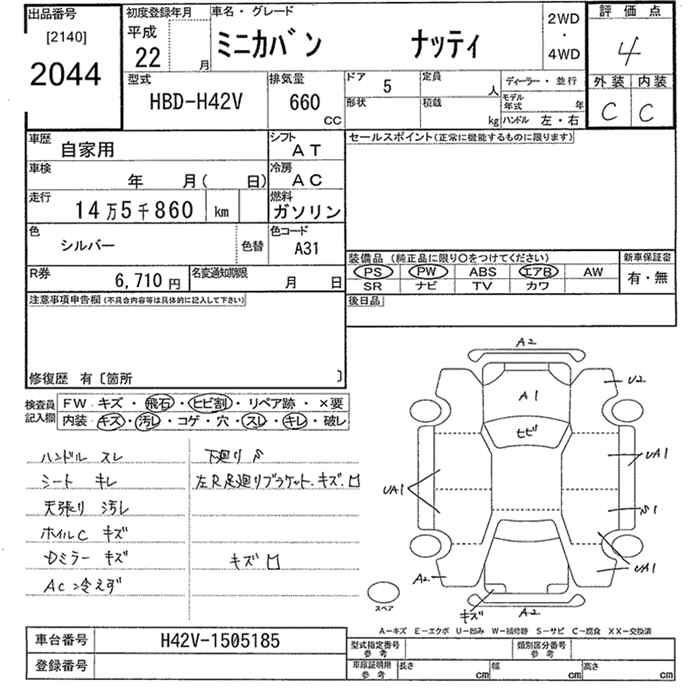 出品番号
[2140]
2044
初度登録年月
平成
22 月
車名・グレード
ミニカバン ナッティ
2WD
・
4WD
評価点
4
外装 内装
C C
型式
HBD-H42V
排気量
660
CC
ドア 5
形状
定員 人
積載 kg
ディーラー・並行
モデル年式 年
ハンドル 左・右
車歴
自家用
シフト
AT
セールスポイント(正常に機能するものに限ります)
車検
年 月( 日)
冷房
AC
走行
14万5千860 km
燃料
ガソリン
色
シルバー
色替
色コード
A31
装備品(純正品に限り○をつけてください)
PS PW ABS エアB AW
SR ナビ TV カワ
新車保証書
有・無
R券
6,710 円
名変通知期限
月 日
後日品
注意事項申告欄(不具合内容等は具体的に記入して下さい)
修復歴 有〔箇所 〕
検査員記入欄
FW キズ・飛石・ヒビ割・リペア跡・×要
内装 キズ・汚レ・コゲ・穴・スレ・キレ・破レ
ハンドル スレ
シート キレ
天張リ 汚レ
ホイルC キズ
Dミラー キズ
AC 冷えず
下廻り S
左R足廻りブラケット、キズ、凹
キズ凹
A2
A1
U2
ヒビ
UA1
UA1
S1
UA1
A2
キズ
A2
スペア
A-キズ E-エクボ U-凹み W-補修跡 S-サビ C-腐食 XX-交換済
車台番号 H42V-1505185
登録番号
型式指定番号
参考
類別区分番号
参考
車庫証明用
参考
長さ cm 幅 cm 高さ cm